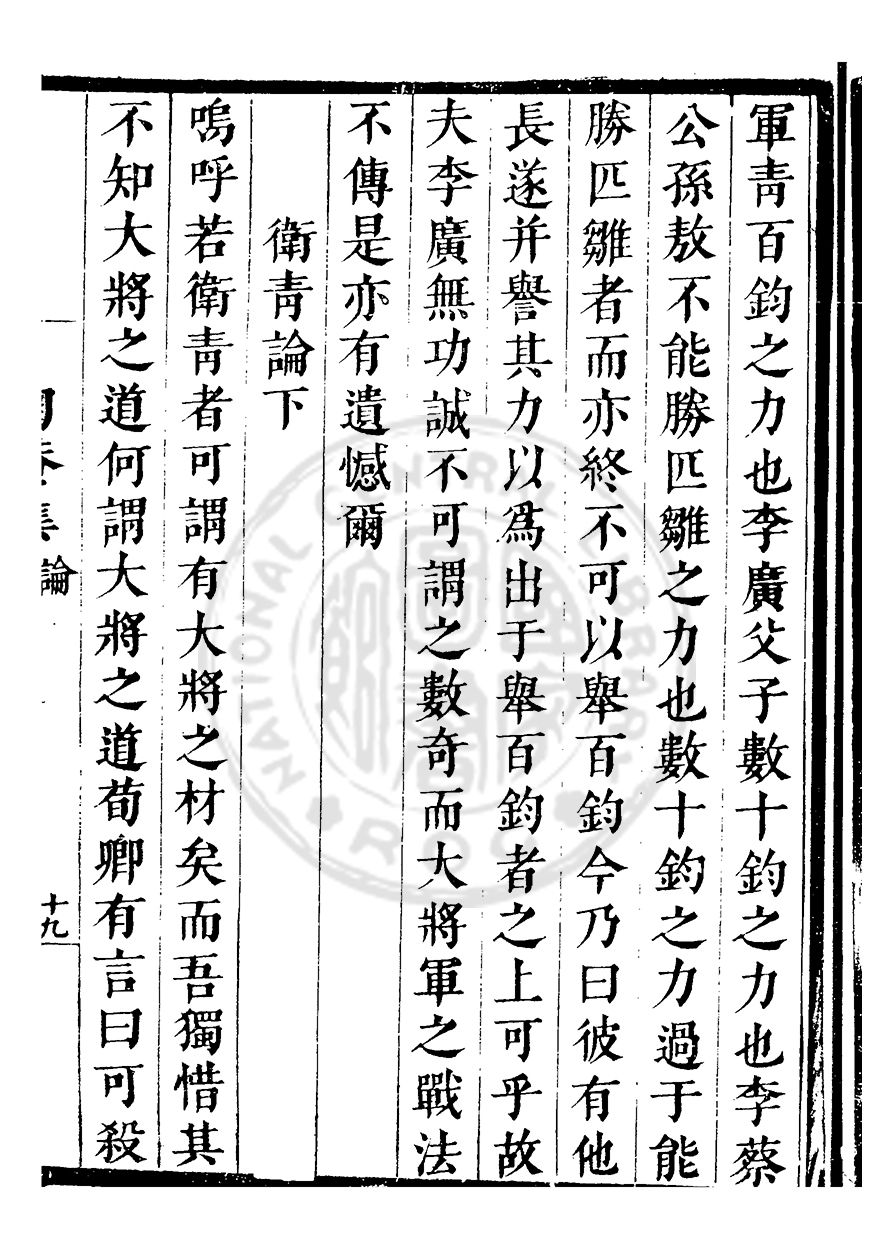 軍靑百鈞之力也李廣父子數十鈞之力也李蔡
公孫敖不能勝匹雛之力也數十鈞之力過于能
勝匹雛者而亦終不可以舉百鈞今乃曰彼有他
長遂并譽其力以爲出于舉百鈞者之上可乎故
夫李廣無功誠不可謂之數奇而大將軍之戰法
不傳是亦有遺憾爾
衛靑論下
嗚呼若衛靑者可謂有大將之材矣而吾獨惜其
不知大將之道何謂大將之道荀卿有言曰可殺
集論
十九
NATIONAL CENTRAL LIBRARY
R.O.C.